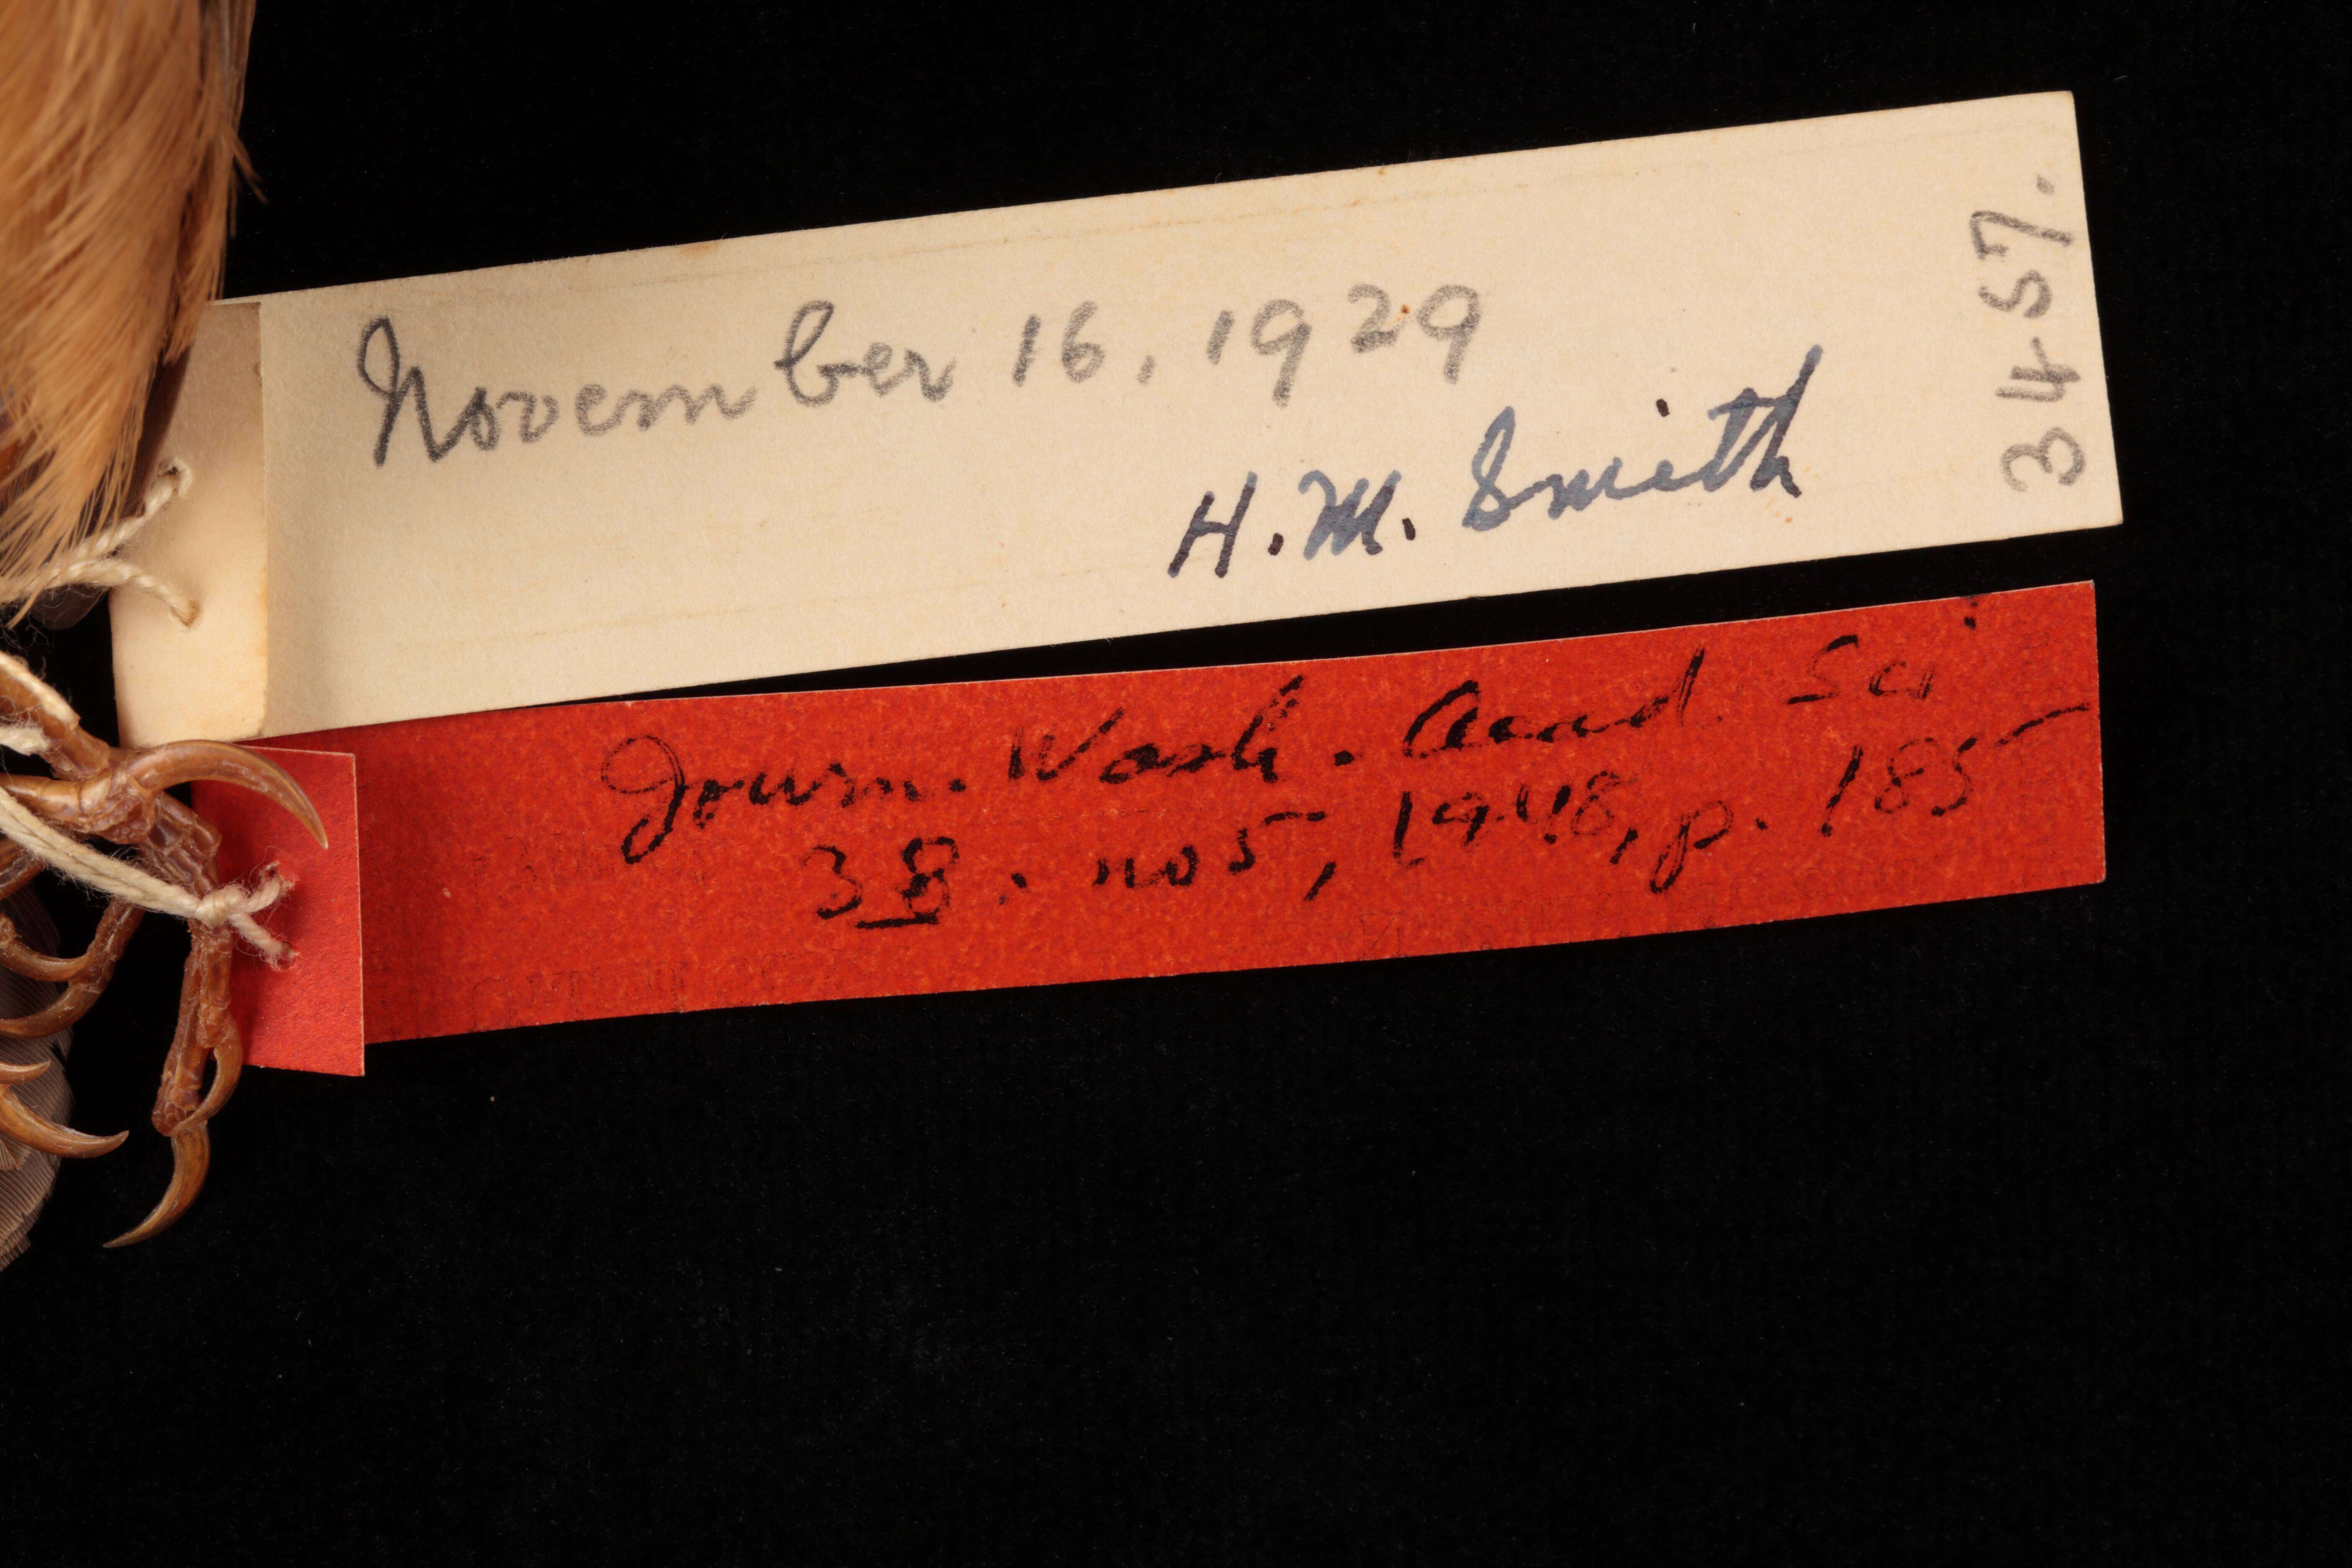 November 16, 1929
H. M. Smith
3457.
Journ. Wash. Acad. Sci.
38. no 5, 1948, p. 185